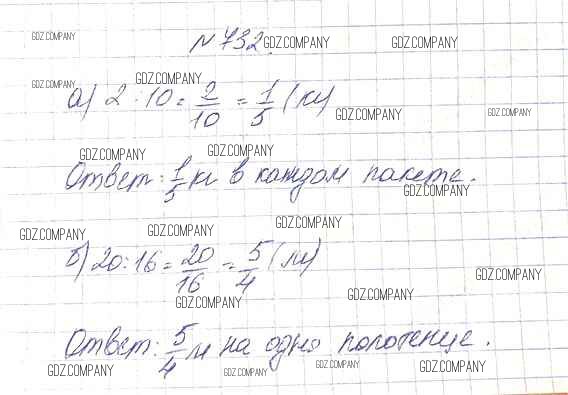 GDZ.COMPANY
№732.
GDZ.COMPANY
GDZ.COMPANY
GDZ.COMPANY
GDZ.COMPANY
а) 2 : 10 = 2/10 = 1/5 (кг)
GDZ.COMPANY
GDZ.COMPANY
GDZ.COMPANY
GDZ.COMPANY
Ответ: 1/5 кг в каждом пакете.
GDZ.COMPANY
GDZ.COMPANY
GDZ.COMPANY
GDZ.COMPANY
б) 20 : 16 = 20/16 = 5/4 (м)
GDZ.COMPANY
GDZ.COMPANY
GDZ.COMPANY
Ответ: 5/4 м на одно полотенце.
GDZ.COMPANY
GDZ.COMPANY
GDZ.COMPANY
GDZ.COMPANY